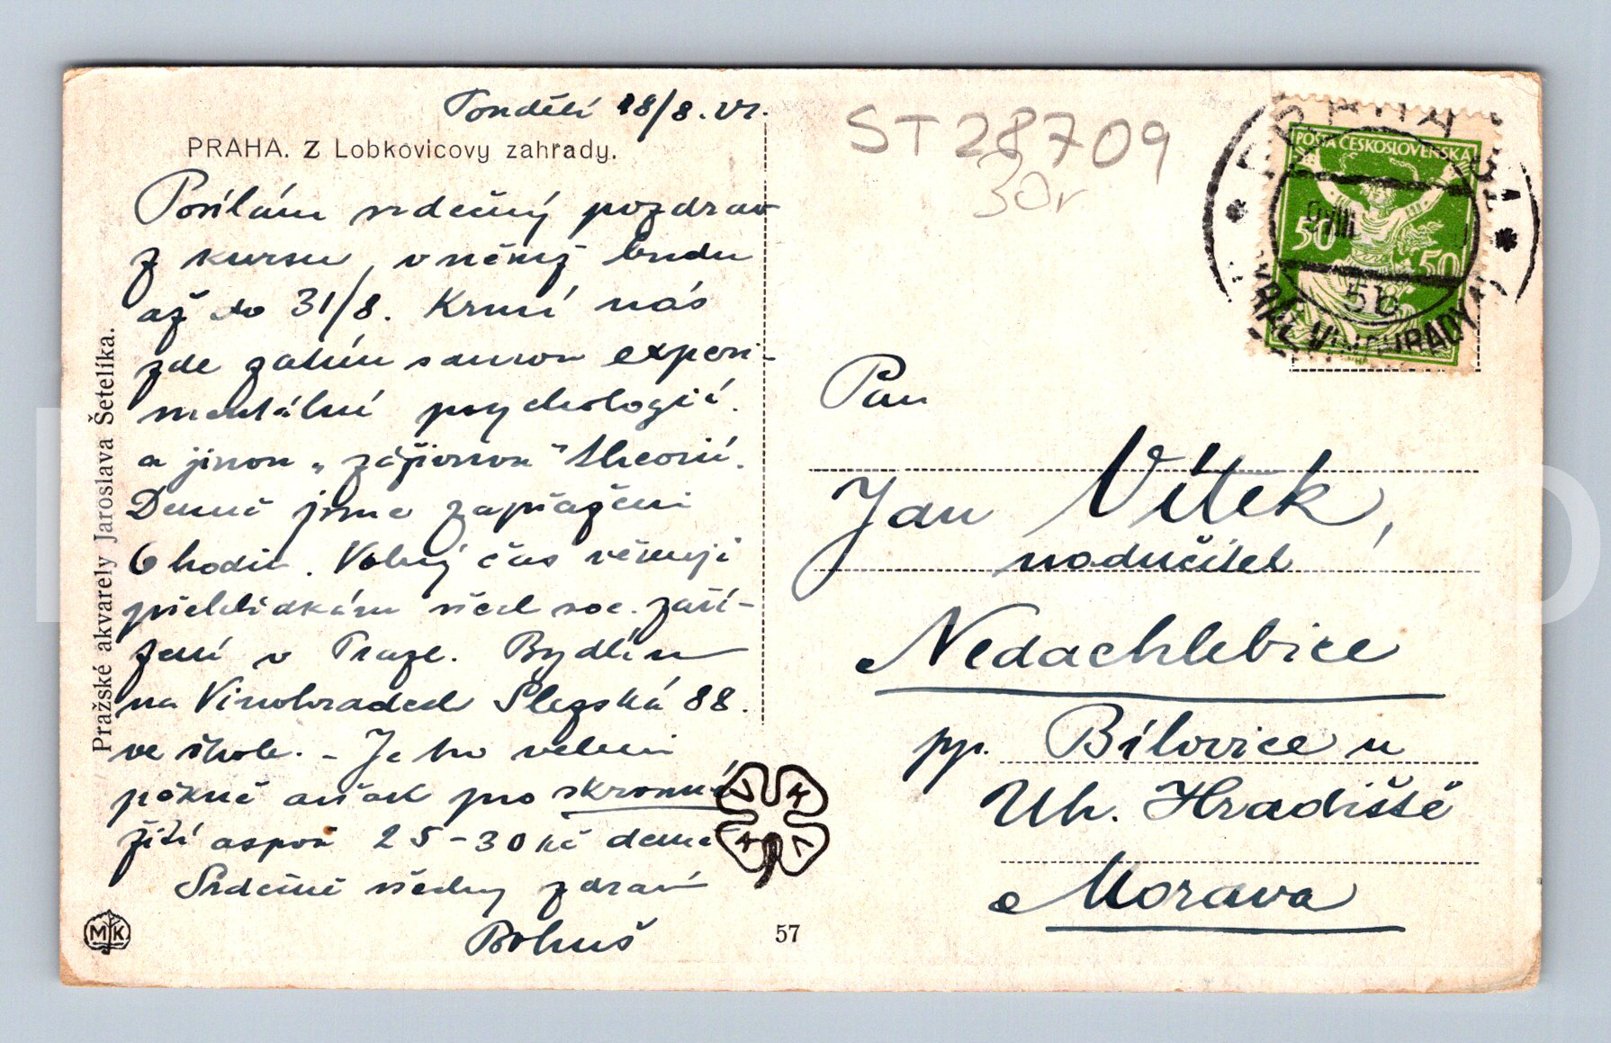 Pondělí 18/8. VI.
PRAHA. Z Lobkovicovy zahrady.
Posílám srdečný pozdrav
z kursu, v němž budu
až do 31/8. Krmí nás
zde zatím samou experi-
mentální psychologií.
a jinou „záživnou" theorií.
Denně jsme zapřaženi
6 hodin. Volný čas věnuji
přehlídkám všech soc. zaří-
zení v Praze. Bydlím
na Vinohradech Slezská 88.
ve škole. – Je to velmi
pěkné avšak pro skromné
žití aspoň 25-30 Kč denně
Srdečně všechny zdraví
Bohuš
Pražské akvarely Jaroslava Šetelíka.
MK
57
V K K V
ST28709
30,-
POŠTA ČESKOSLOVENSKÁ
50 50
PRAHA 31
9 VIII
5b
KRÁL. VINOHRADY
Pan
Jan Vítek,
nadučitel
Nedachlebice
pp. Bílovice u
Uh. Hradiště
Morava